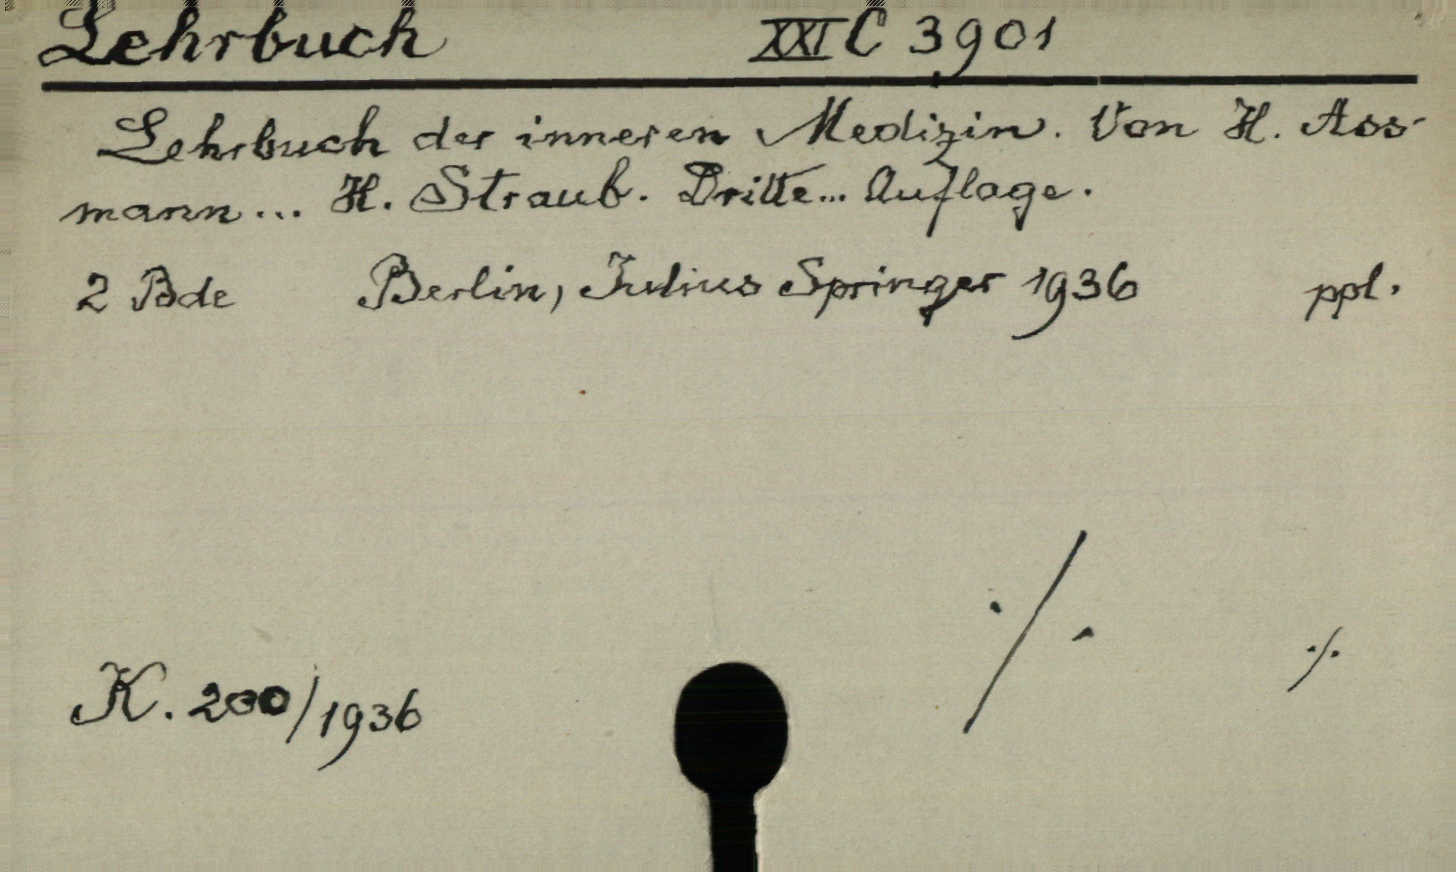 Lehrbuch XXI C 3901
Lehrbuch der inneren Medizin. Von H. Ass-
mann... H. Straub. Dritte... Auflage.
2 Bde Berlin, Julius Springer 1936 ppl.
K. 200/1936 ./. ./.